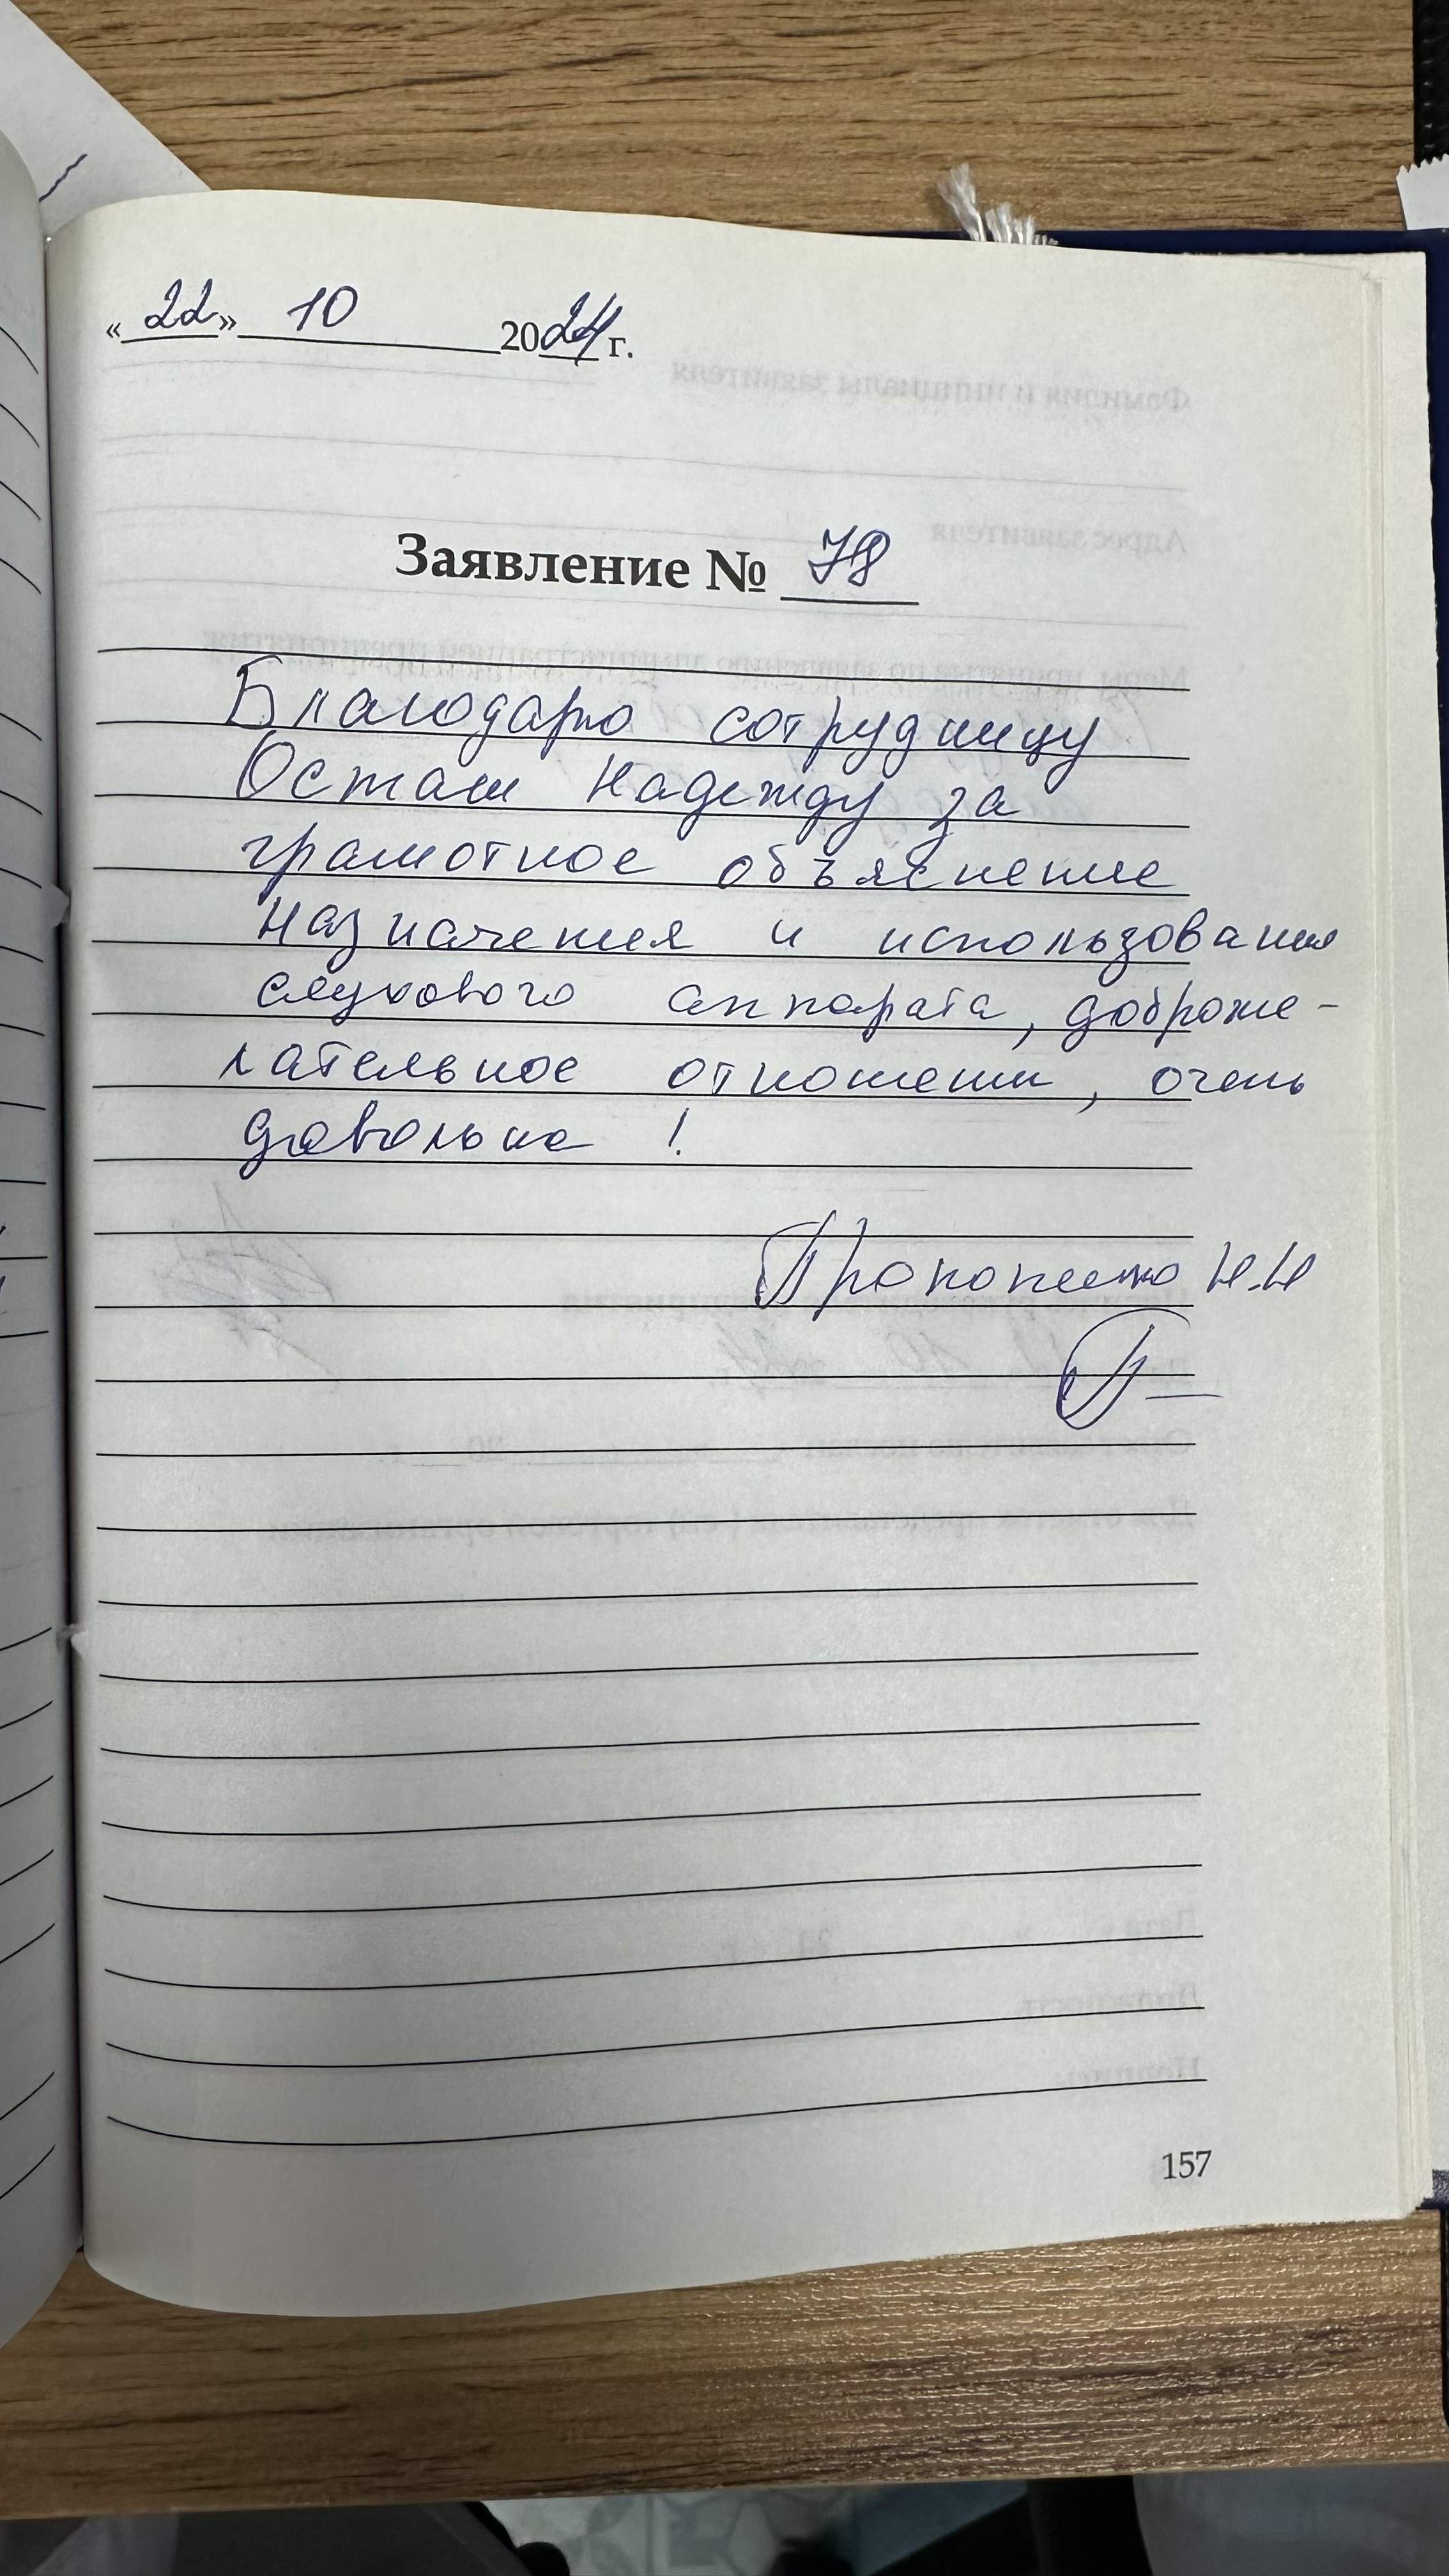 «22» 10 2024 г.
Заявление № 78
Благодарю сотрудницу
Осташ Надежду за
грамотное объяснение
назначения и использования
слухового аппарата, доброже-
лательное отношение, очень
довольна!
Н.Н
157